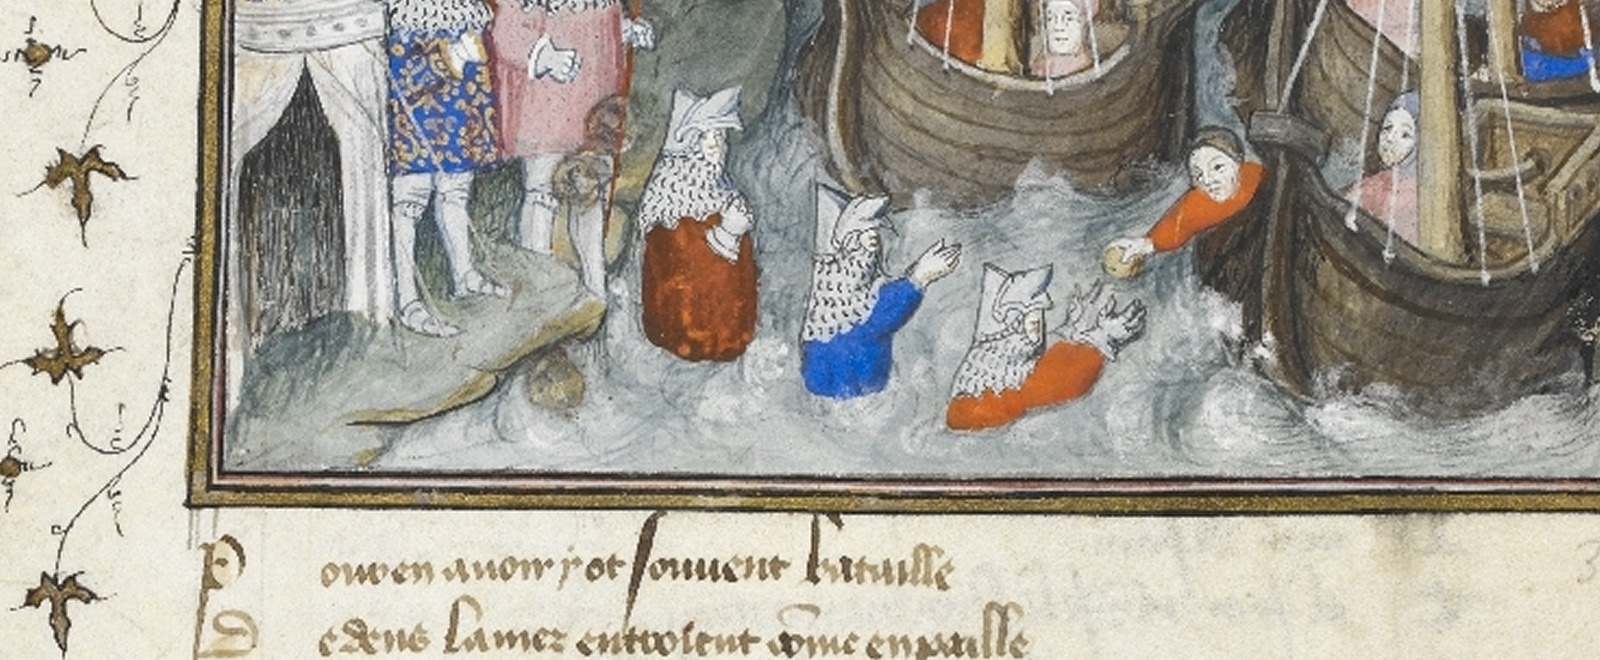 Pour en auoir y ot souuent bataille
Dedens la mer entroient cõme en paille
3